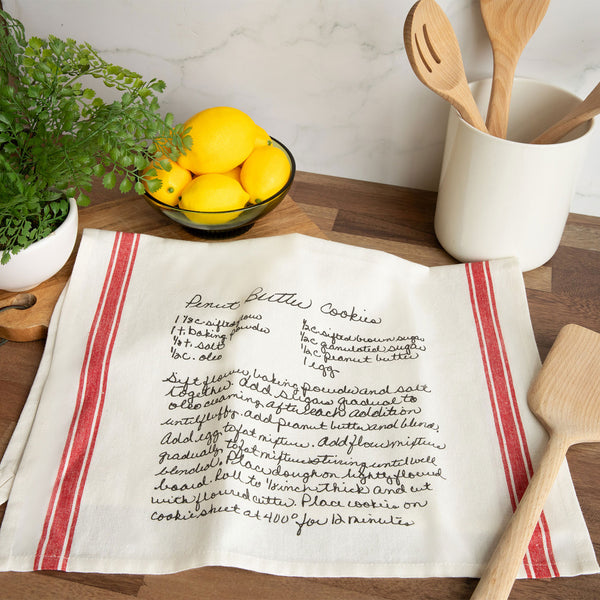 Penut Butter Cookies
1 1/2 c sifted flour
1 t. baking powder
1/2 t. salt
1/2 c. oleo
1/2 c sifted brown sugar
1/2 c granulated sugar
1/2 c peanut butter
1 egg
Sift flower, baking powder and salt
together. add sugar gradual to
oleo creaming after each addition
until fluffy. add peanut butter and blend,
Add egg to fat mixture. Add flour mixture
gradually to fat mixture stirring until well
blended. Place dough on lightly flowred
board. Roll to 1/8 inch thick and cut
with floured cutter. Place cookies on
cookie sheet at 400° for 12 minutes